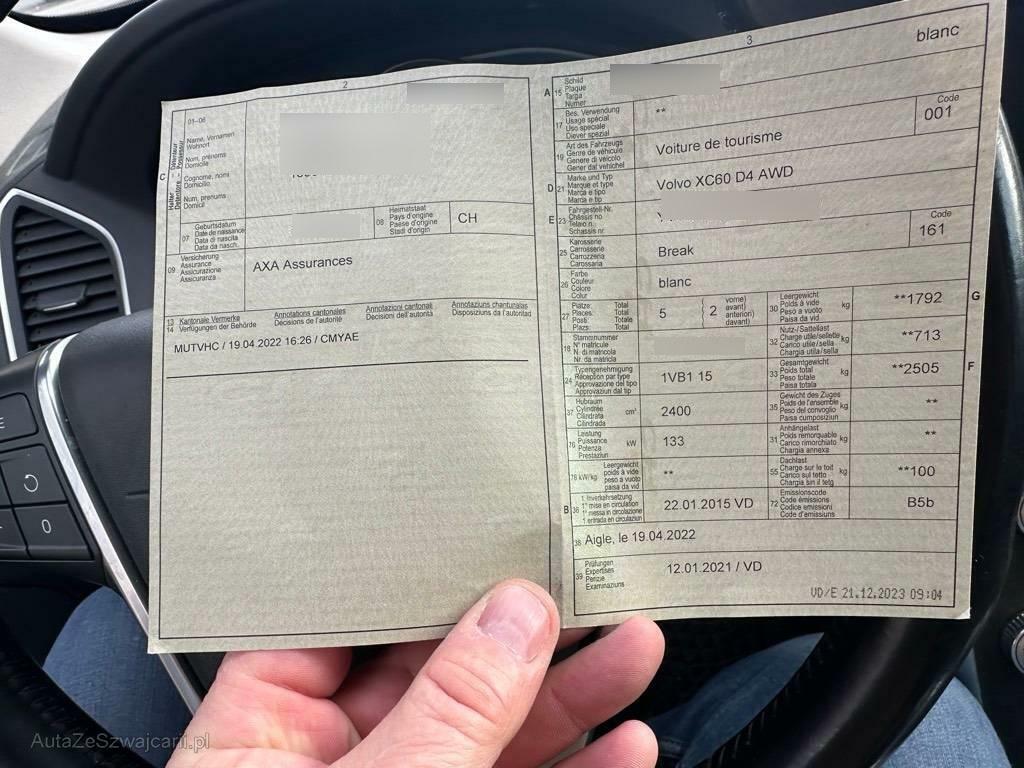 2
01–06
Name, Vornamen
Wohnort
Nom, prénoms
Domicile
Cognome, nomi
Domicilio
Num, prenums
Domicil
C
Halter
Détenteur
Detentore
Possessur
07
Geburtsdatum
Date de naissance
Data di nascita
Data da nasch.
08
Heimatstaat
Pays d'origine
Paese d'origine
Stadi d'origin
CH
09
Versicherung
Assurance
Assicurazione
Assicuranza
AXA Assurances
13 Kantonale Vermerke Annotations cantonales Annotazioni cantonali Annotaziuns chantunalas
14 Verfügungen der Behörde Décisions de l'autorité Decisioni dell'autorità Disposiziuns da l'autoritad
MUTVHC / 19.04.2022 16:26 / CMYAE
3
blanc
A 15
Schild
Plaque
Targa
Numer
17
Bes. Verwendung
Usage spécial
Uso speciale
Diever spezial
**
19
Art des Fahrzeugs
Genre de véhicule
Genere di veicolo
Gener dal vehichel
Voiture de tourisme
Code
001
D 21
Marke und Typ
Marque et type
Marca e tipo
Marca e tip
Volvo XC60 D4 AWD
E 23
Fahrgestell-Nr.
Châssis no
Telaio n.
Schassis nr.
25
Karosserie
Carrosserie
Carrozzeria
Carossaria
Break
Code
161
26
Farbe
Couleur
Colore
Colur
blanc
27
Plätze: Total
Places: Total
Posti: Totale
Plazs: Total
5
{ 2
vorne)
avant)
anteriori)
davant)
30
Leergewicht
Poids à vide
Peso a vuoto
Paisa da vid
kg
**1792
G
18
Stammnummer
N° matricule
N. di matricola
Nr. da matricla
32
Nutz-/Sattellast
Charge utile/sellette
Carico utile/sella
Chargia utila/sella
kg
**713
24
Typengenehmigung
Réception par type
Approvazione del tipo
Approvaziun dal tip
1VB1 15
33
Gesamtgewicht
Poids total
Peso totale
Paisa totala
kg
**2505
F
37
Hubraum
Cylindrée
Cilindrata
Cilindrada
cm³
2400
35
Gewicht des Zuges
Poids de l'ensemble
Peso del convoglio
Paisa cumposiziun
kg
**
76
Leistung
Puissance
Potenza
Prestaziun
kW
133
31
Anhängelast
Poids remorquable
Carico rimorchiato
Chargia annexa
kg
**
78 kW/kg
Leergewicht
poids à vide
peso a vuoto
paisa da vid
**
55
Dachlast
Charge sur le toit
Carico sul tetto
Chargia sin il tetg
kg
**100
B 36
1. Inverkehrsetzung
1ère mise en circulation
1a messa in circolazione
1. entrada en circulaziun
22.01.2015 VD
72
Emissionscode
Code émissions
Codice emissioni
Code d'emissiuns
B5b
38 Aigle, le 19.04.2022
39
Prüfungen
Expertises
Perizie
Examinaziuns
12.01.2021 / VD
VD/E 21.12.2023 09:04
0
AutaZeSzwajcarii.pl